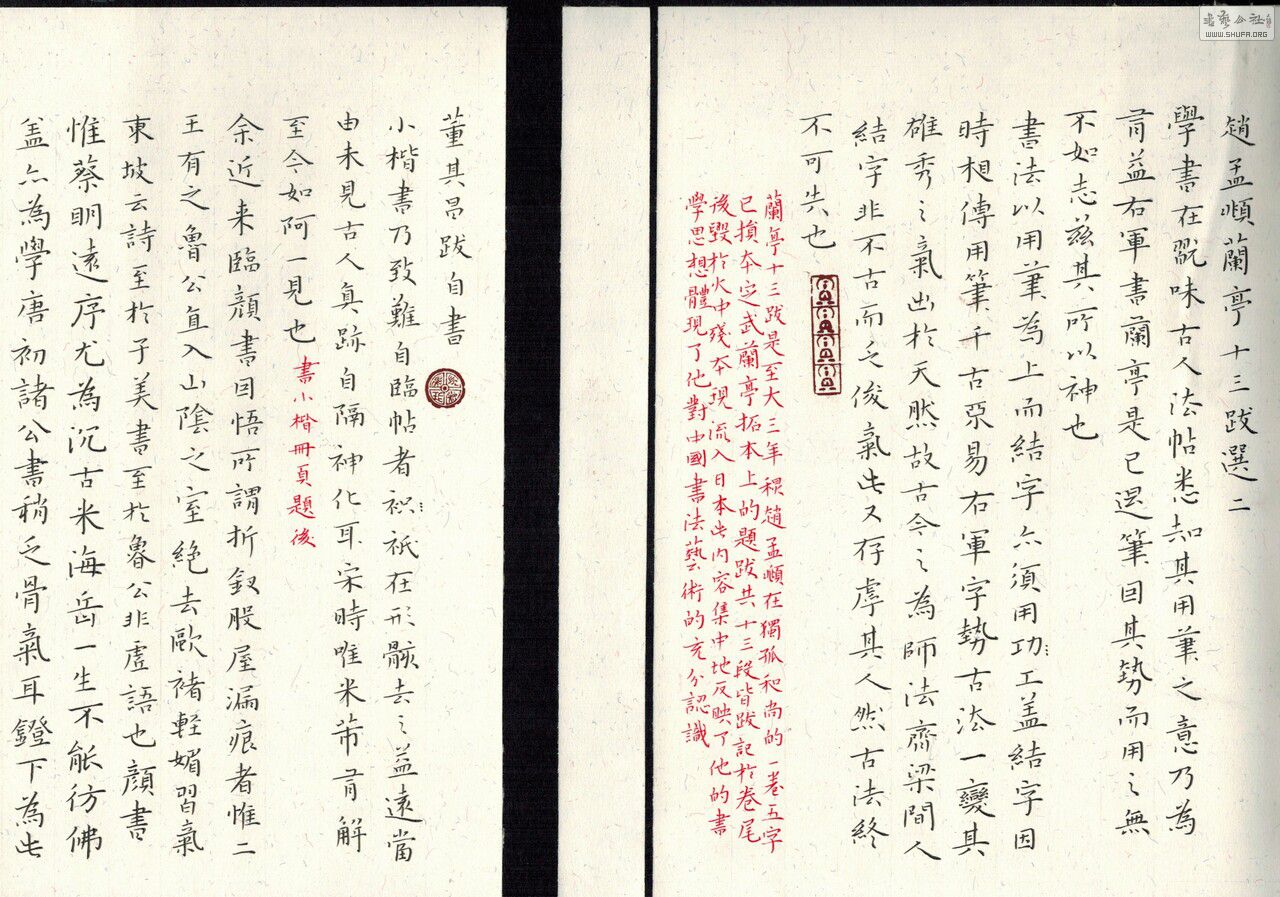 趙孟頫蘭亭十三跋選二
學書在翫味古人法帖悉知其用筆之意乃為
有益右軍書蘭亭是已退筆因其勢而用之無
不如志茲其所以神也
書法以用筆為上而結字亦須用功工盖結字因
時相傳用筆千古不易右軍字勢古法一變其
雄秀之氣出於天然故古今之為師法齊梁間人
結字非不古而乏俊氣此又存虖其人然古法終
不可失也
蘭亭十三跋是至大三年 趙孟頫在獨孤和尚的一卷五字
已損本定武蘭亭拓本上的題跋共十三段皆跋記於卷尾
後毀於火中殘本現流入日本此內容集中地反映了他的書
學思想體現了他對中國書法藝術的充分認識
董其昌跋自書
小楷書乃致難自臨帖者祇在形骸去之益遠當
由未見古人真跡自隔神化耳宋時唯米芾有解
至今如阿一見也 書小楷冊頁題後
余近来臨顔書因悟所謂折釵股屋漏痕者惟二
王有之魯公直入山陰之室絶去歐褚輕媚習氣
東坡云詩至於子美書至於魯公非虛語也顔書
惟蔡明遠序尤為沉古米海岳一生不能彷佛
盖亦為學唐初諸公書稍乏骨氣耳鐙下為此
书艺公社
WWW.SHUFA.ORG